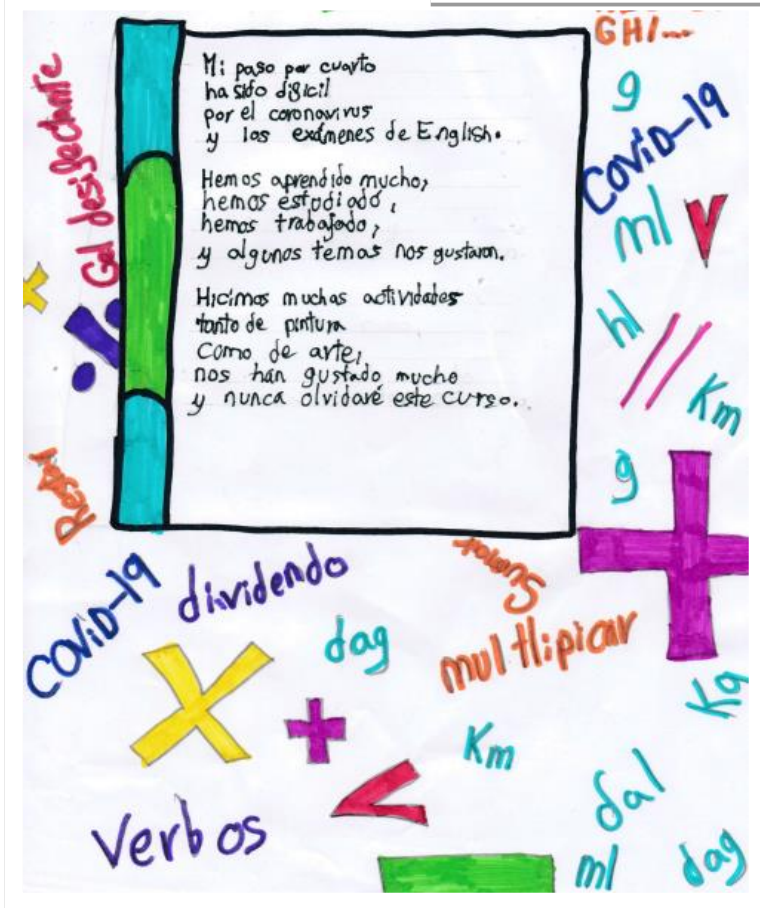 GHI...
g
Covid-19
Gel desifectante
Mi paso por cuarto
ha sido difícil
por el coronavirus
y los exámenes de English.
Hemos aprendido mucho,
hemos estudiado,
hemos trabajado,
y algunos temas nos gustaron.
Hicimos muchas actividades
tanto de pintura
como de arte,
nos han gustado mucho
y nunca olvidaré este curso.
ml
hl
Km
g
Restar
Covid-19
dividendo
Sumar
dag
multlipicar
Kg
Km
Verbos
dal
ml
dag